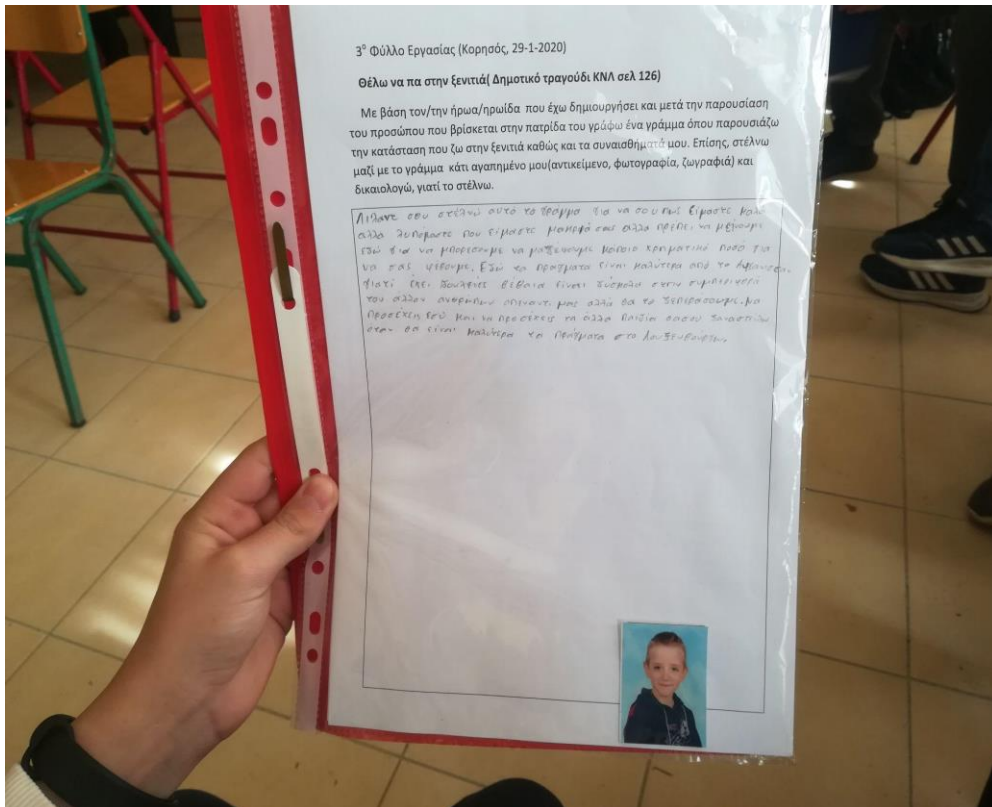 3ο Φύλλο Εργασίας (Κορησός, 29-1-2020)
Θέλω να πα στην ξενιτιά( Δημοτικό τραγούδι ΚΝΛ σελ 126)
Με βάση τον/την ήρωα/ηρωίδα που έχω δημιουργήσει και μετά την παρουσίαση
του προσώπου που βρίσκεται στην πατρίδα του γράφω ένα γράμμα όπου παρουσιάζω
την κατάσταση που ζω στην ξενιτιά καθώς και τα συναισθήματά μου. Επίσης, στέλνω
μαζί με το γράμμα κάτι αγαπημένο μου(αντικείμενο, φωτογραφία, ζωγραφιά) και
δικαιολογώ, γιατί το στέλνω.
σου στέλνω αυτό το γράμμα για να σου πως είμαστε καλά
αλλα λυπόμαστε που είμαστε μακρυά σας αλλα πρέπει να μείνουμε
εδώ για να μπορέσουμε να μαζέψουμε κάποιο χρηματικό ποσό για
να σας Εδώ τα πράγματα είναι καλύτερα από το
γιατί έχει δουλειές βέβαια είναι δύσκολα στην συμπεριφορά
του άλλου ανθρώπων απέναντι μας αλλά θα το ξεπεράσουμε.
και να προσέχεις τα άλλα παιδία
όταν θα είναι καλύτερα τα πράγματα στο